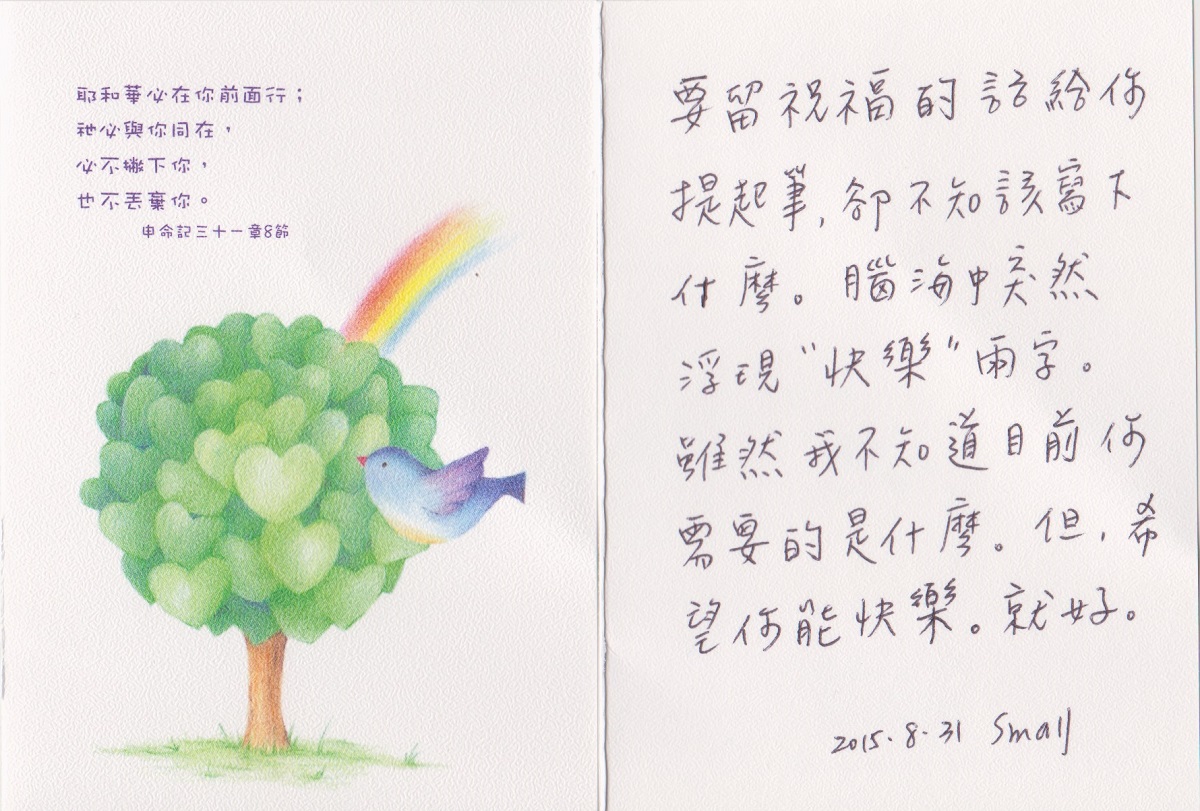 耶和華必在你前面行；
祂必與你同在，
必不撇下你，
也不丟棄你。
申命記三十一章8節
要留祝福的話給你
提起筆,卻不知該寫下
什麼。腦海中突然
浮現"快樂"兩字。
雖然我不知道目前你
需要的是什麼。但,希
望你能快樂。就好。
2015.8.31 Small